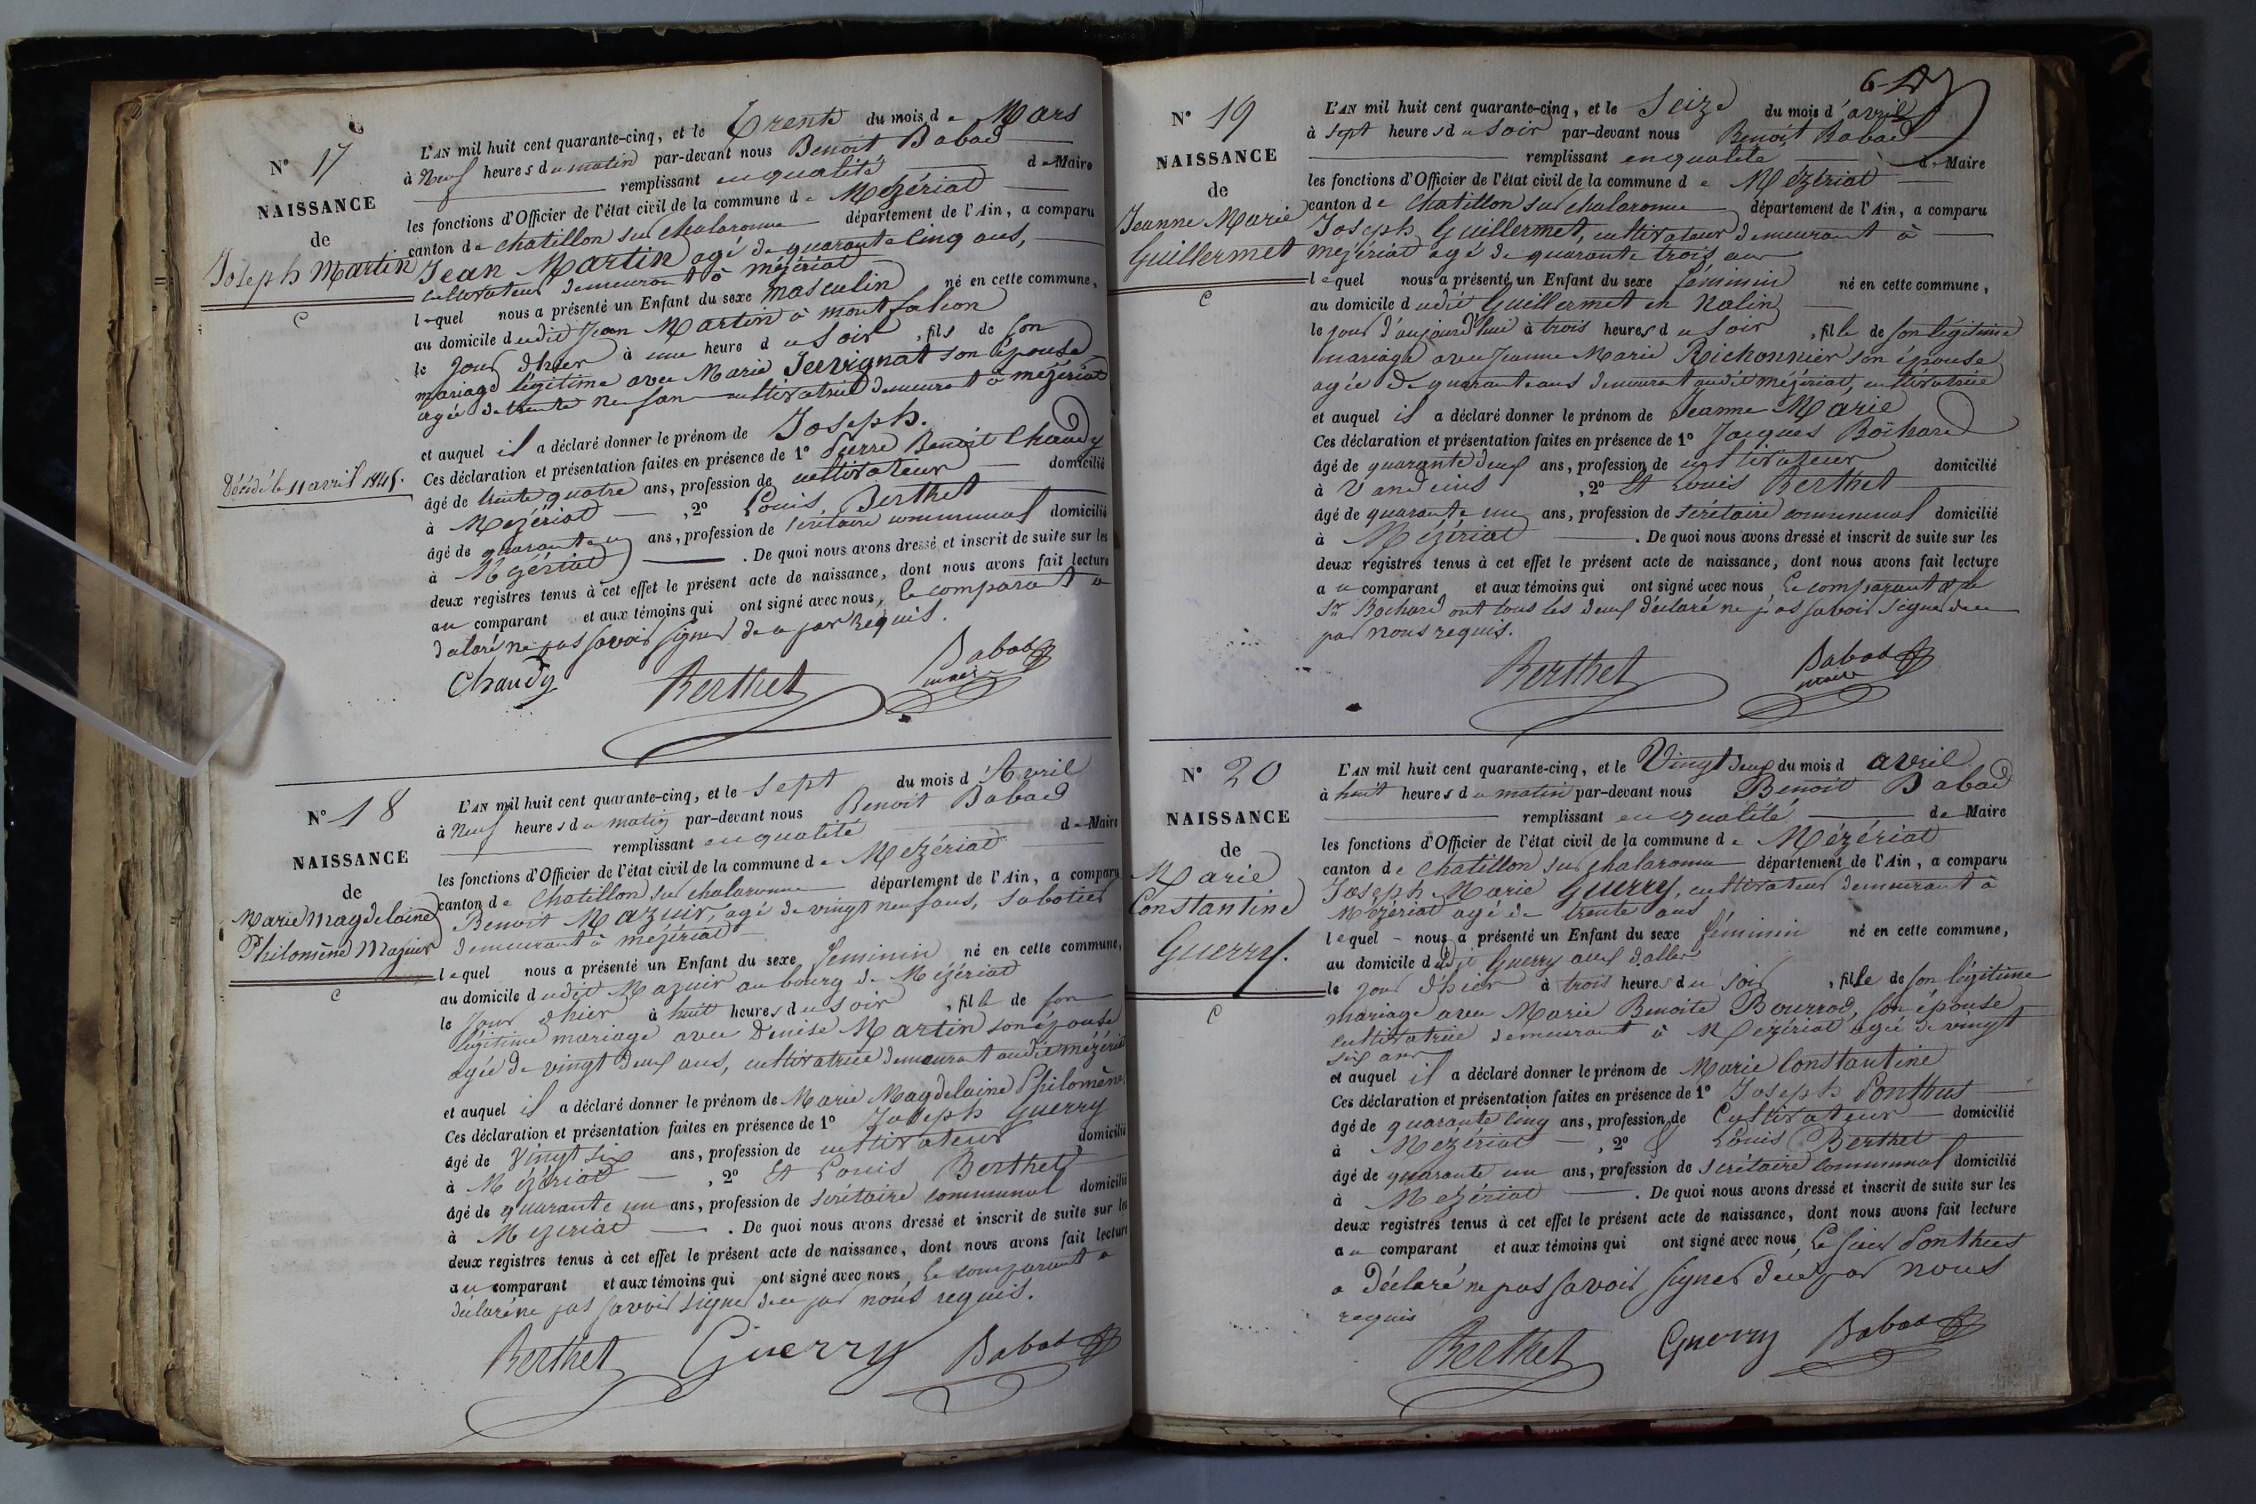 N° 17
NAISSANCE
de
Joseph Martin
C
Décédé le 11 avril 1845.
L'AN mil huit cent quarante-cinq, et le Trente du mois de Mars
à Neuf heures du matin par-devant nous Benoit Babad
remplissant en qualité de Maire
les fonctions d'Officier de l'état civil de la commune de Mézériat
canton de Chatillon sur Chalaronne département de l'Ain, a comparu
Jean Martin agé de quarante cinq ans,
cultivateur demeurant à mézériat
lequel nous a présenté un Enfant du sexe masculin né en cette commune,
au domicile dudit Jean Martin à montfalcon
le Jour d'hier à une heure du soir, fils de son
mariage légitime avec Marie Servignat son épouse
agée de trente neuf ans cultivatrice demeurant à mézériat
et auquel il a déclaré donner le prénom de Joseph.
Ces déclaration et présentation faites en présence de 1° Pierre Benoit Chaudy
âgé de trente quatre ans, profession de cultivateur domicilié
à Mézériat, 2° Louis Berthet
âgé de quarante un ans, profession de secrétaire communal domicilié
à Mézériat. De quoi nous avons dressé et inscrit de suite sur les
deux registres tenus à cet effet le présent acte de naissance, dont nous avons fait lecture
au comparant et aux témoins qui ont signé avec nous, le comparant a
déclaré ne pas savoir signer de ce par Requis.
Chaudy Berthet Babad
maire
N° 18
NAISSANCE
de
Marie Magdelaine
Philomène Mazuir
C
L'AN mil huit cent quarante-cinq, et le sept du mois d'Avril
à Neuf heures du matin par-devant nous Benoit Babad
remplissant en qualité de Maire
les fonctions d'Officier de l'état civil de la commune de Mézériat
canton de Chatillon sur Chalaronne département de l'Ain, a comparu
Benoit Mazuir, agé de vingt neuf ans, sabotier
demeurant à mézériat
lequel nous a présenté un Enfant du sexe féminin né en cette commune,
au domicile dudit Mazuir au bourg de Mézériat
le Jour d'hier à huit heures du soir, fille de son
légitime mariage avec Denise Martin son épouse
agée de vingt deux ans, cultivatrice demeurant audit mézériat
et auquel il a déclaré donner le prénom de Marie Magdelaine Philomène
Ces déclaration et présentation faites en présence de 1° Joseph Guerry
âgé de vingt six ans, profession de cultivateur domicilié
à Mézériat, 2° Et Louis Berthet
âgé de quarante un ans, profession de secrétaire communal domicilié
à Mézériat. De quoi nous avons dressé et inscrit de suite sur les
deux registres tenus à cet effet le présent acte de naissance, dont nous avons fait lecture
au comparant et aux témoins qui ont signé avec nous, le comparant a
déclaré ne pas savoir signer de ce par nous requis.
Berthet Guerry Babad
N° 19
NAISSANCE
de
Jeanne Marie
Guillermet
C
L'AN mil huit cent quarante-cinq, et le Seize du mois d'avril
à sept heures du soir par-devant nous Benoit Babad
remplissant en qualité de Maire
les fonctions d'Officier de l'état civil de la commune de Mézériat
canton de Chatillon sur Chalaronne département de l'Ain, a comparu
Joseph Guillermet, cultivateur demeurant à
mézériat agé de quarante trois ans
lequel nous a présenté un Enfant du sexe féminin né en cette commune,
au domicile dudit Guillermet en Nalin
le jour d'aujourd'hui à trois heures du soir, fille de son légitime
mariage avec Jeanne Marie Richonnier son épouse
agée de quarante ans demeurant audit mézériat, cultivatrice
et auquel il a déclaré donner le prénom de Jeanne Marie
Ces déclaration et présentation faites en présence de 1° Jacques Bochard
âgé de quarante deux ans, profession de cultivateur domicilié
à Vandeins, 2° Et Louis Berthet
âgé de quarante un ans, profession de secrétaire communal domicilié
à Mézériat. De quoi nous avons dressé et inscrit de suite sur les
deux registres tenus à cet effet le présent acte de naissance, dont nous avons fait lecture
au comparant et aux témoins qui ont signé avec nous le comparant & le
Sr Bochard ont tous les deux déclaré ne pas savoir signer de ce
par nous requis.
Berthet Babad
maire
N° 20
NAISSANCE
de
Marie
Constantine
Guerry.
C
L'AN mil huit cent quarante-cinq, et le Vingt deux du mois d avril
à huit heures du matin par-devant nous Benoit Babad
remplissant en qualité de Maire
les fonctions d'Officier de l'état civil de la commune de Mézériat
canton de Chatillon sur Chalaronne département de l'Ain, a comparu
Joseph Marie Guerry, cultivateur demeurant à
Mézériat agé de trente ans
lequel nous a présenté un Enfant du sexe féminin né en cette commune,
au domicile dudit Guerry
le jour d'hier à trois heures du soir, fille de son légitime
mariage avec Marie Benoite Bourrod, son épouse
cultivatrice demeurant à Mézériat agée de vingt
six ans
et auquel il a déclaré donner le prénom de Marie Constantine
Ces déclaration et présentation faites en présence de 1° Joseph Ponthus
âgé de quarante cinq ans, profession de Cultivateur domicilié
à Mézériat, 2° & Louis Berthet
âgé de quarante un ans, profession de secrétaire communal domicilié
à Mézériat. De quoi nous avons dressé et inscrit de suite sur les
deux registres tenus à cet effet le présent acte de naissance, dont nous avons fait lecture
au comparant et aux témoins qui ont signé avec nous, le sieur Ponthus
a déclaré ne pas savoir signer de ce par nous
requis
Berthet Guerry Babad